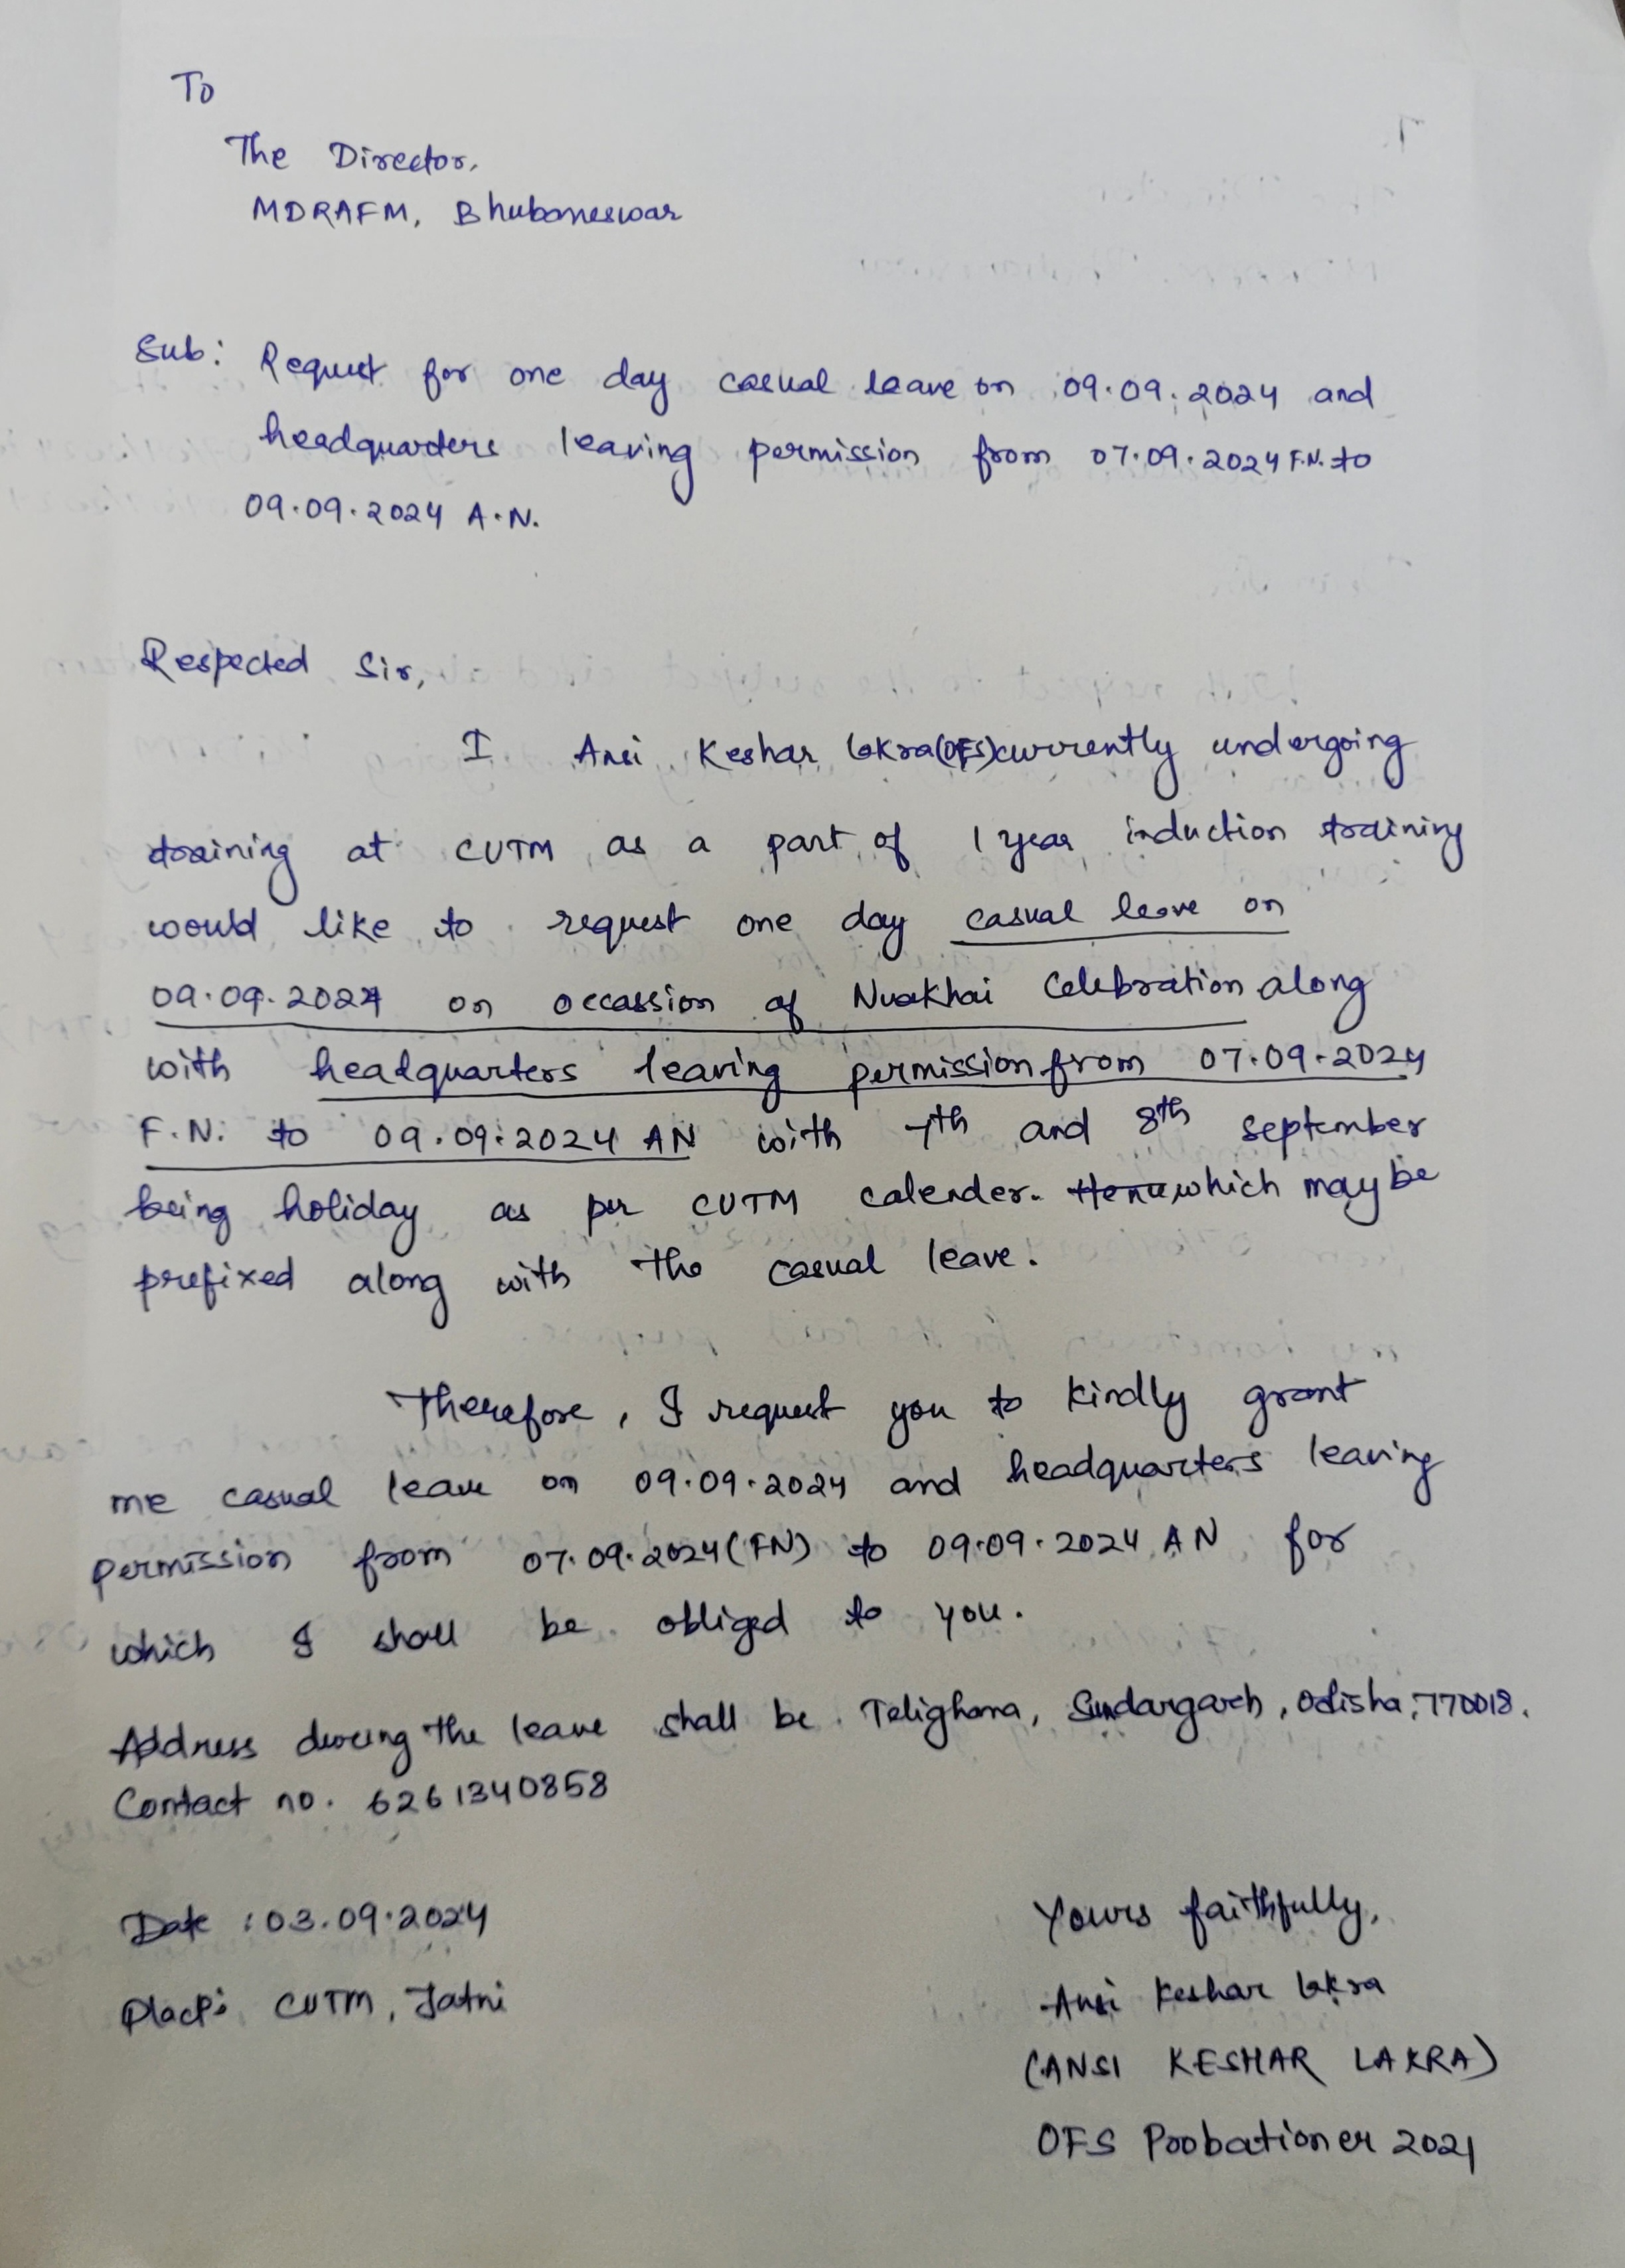 To
The Director,
MDRAFM, Bhubaneswar
Sub: Request for one day casual leave on 09.09.2024 and
headquarters leaving permission from 07.09.2024 F.N. to
09.09.2024 A.N.
Respected Sir,
I Ansi Keshar Lakra(OFS)currently undergoing
training at CUTM as a part of 1 year induction training
would like to request one day casual leave on
09.09.2024 on occassion of Nuakhai Celebration along
with headquarters leaving permission from 07.09.2024
F.N. to 09.09.2024 AN with 7th and 8th september
being holiday as per CUTM calender. which may be
prefixed along with the casual leave.
Therefore, I request you to kindly grant
me casual leave on 09.09.2024 and headquarters leaving
permission from 07.09.2024(FN) to 09.09.2024 AN for
which I shall be obliged to you.
Address during the leave shall be Telighana, Sundargarh, Odisha, 770018.
Contact no. 6261340858
Date : 03.09.2024
Place: CUTM, Jatni
Yours faithfully,
Ansi Keshar Lakra
(ANSI KESHAR LAKRA)
OFS Probationer 2021